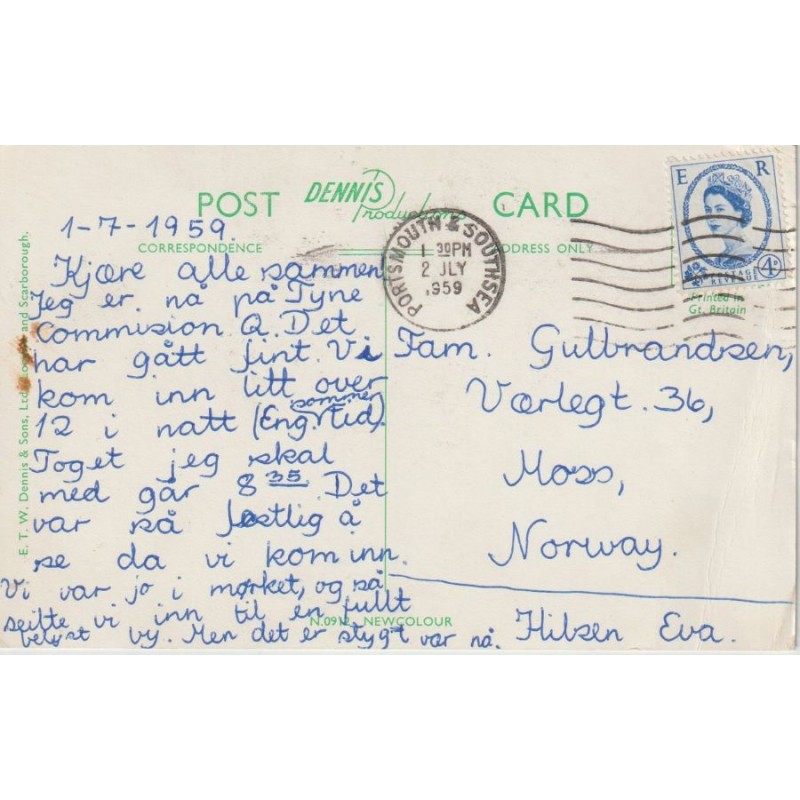 POST DENNIS Productions CARD
CORRESPONDENCE ADDRESS ONLY
E R
POSTAGE REVENUE 4D
Printed in
Gt. Britain
PORTSMOUTH & SOUTHSEA
1 30PM
2 JLY
1959
E. T. W. Dennis & Sons, Ltd., London and Scarborough.
1-7-1959.
Kjære alle sammen
Jeg er nå på Tyne
Commision Q. Det
har gått fint. Vi
kom inn litt over
12 i natt (Eng sommer tid).
Toget jeg skal
med går 8 35. Det
var så festlig å
se da vi kom inn.
Vi var jo i mørket, og så
seilte vi inn til en fullt
belyst by. Men det er stygt vær nå.
N.0912 NEWCOLOUR
Fam. Gulbrandsen,
Værlegt. 36,
Moss,
Norway.
Hilsen Eva.